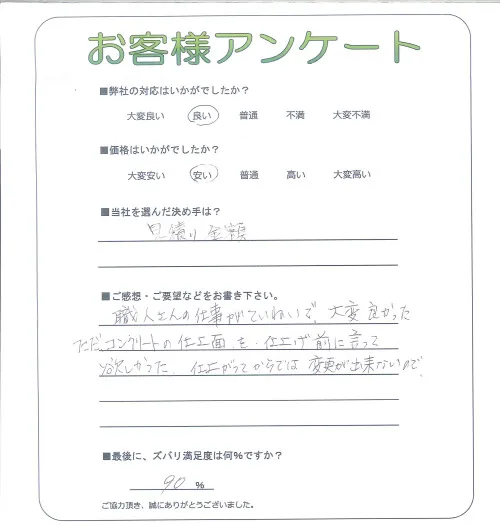 お客様アンケート
■弊社の対応はいかがでしたか？
大変良い 良い 普通 不満 大変不満
■価格はいかがでしたか？
大変安い 安い 普通 高い 大変高い
■当社を選んだ決め手は？
見積り金額
■ご感想・ご要望などをお書き下さい。
職人さんの仕事がていねいで、大変良かった
ただ、コンクリートの仕上面を、仕上げ前に言って
欲しかった。仕上がってからでは変更が出来ないので。
■最後に、ズバリ満足度は何％ですか？
90 ％
ご協力頂き、誠にありがとうございました。